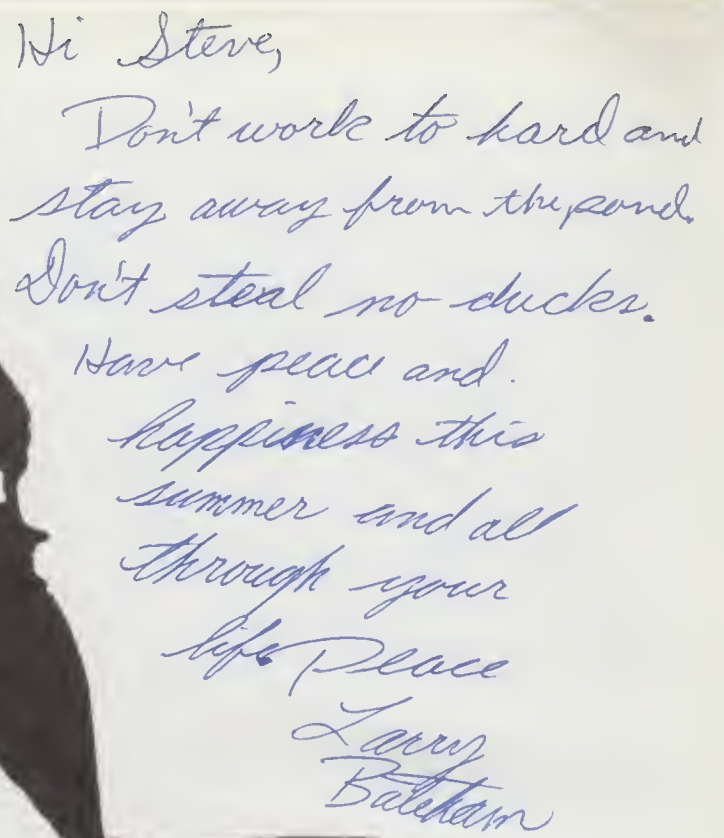 Hi Steve,
Don't work to hard and
stay away from the pond.
Don't steal no ducks.
Have peace and
happiness this
summer and all
through your
life. Peace
Larry